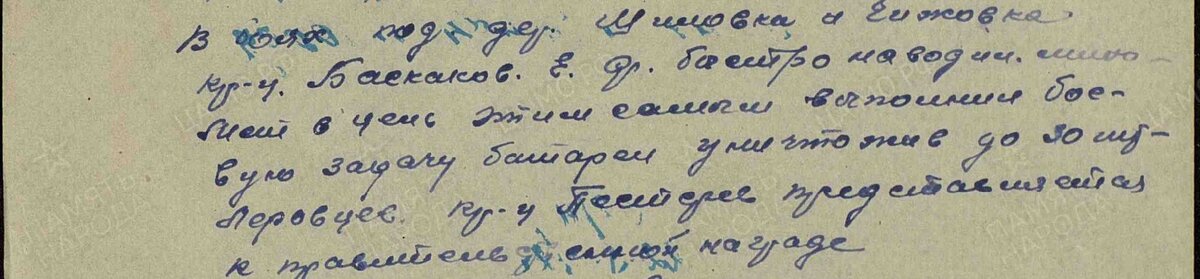 В боях под дер. Шиловка и Ежовка
кр-ц. Баскаков. Е. Фр. быстро наводил. мино-
мет в цель этим самым выполнил бое-
вую задачу батареи уничтожив до 30 гит-
леровцев. кр-ц представляется
к правительственной награде